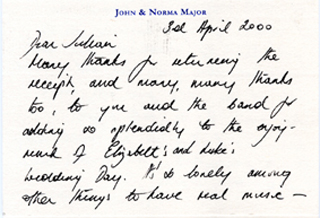 JOHN & NORMA MAJOR
3rd April 2000
Dear Julian
Many thanks for returning the
receipt, and many, many thanks
too, to you and the band for
adding so splendidly to the enjoy-
ment of Elizabeth's and Luke's
Wedding Day. It's so lovely among
other things to have real music —